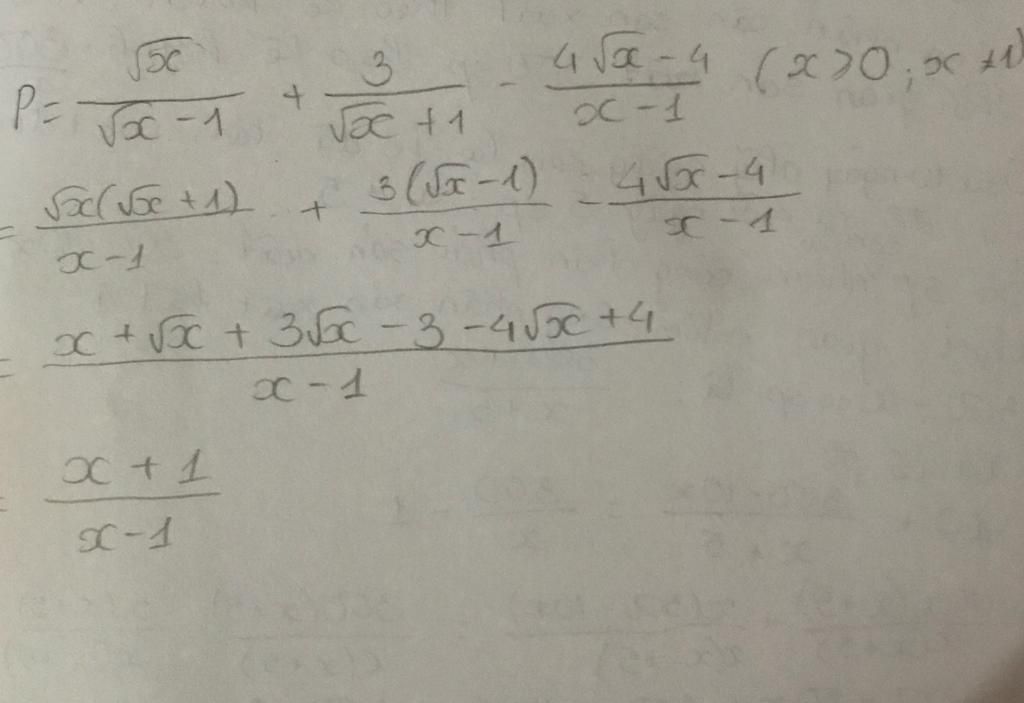 P = \frac{\sqrt{x}}{\sqrt{x} - 1} + \frac{3}{\sqrt{x} + 1} - \frac{4\sqrt{x} - 4}{x - 1} (x > 0; x ≠ 1)
= \frac{\sqrt{x}(\sqrt{x} + 1)}{x - 1} + \frac{3(\sqrt{x} - 1)}{x - 1} - \frac{4\sqrt{x} - 4}{x - 1}
= \frac{x + \sqrt{x} + 3\sqrt{x} - 3 - 4\sqrt{x} + 4}{x - 1}
= \frac{x + 1}{x - 1}